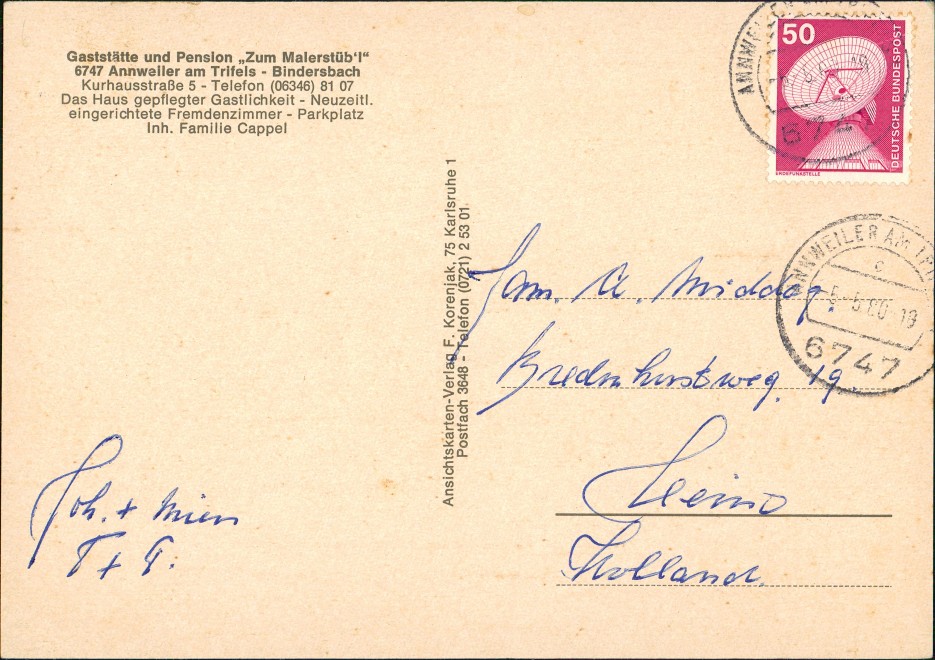 Gaststätte und Pension „Zum Malerstüb'l"
6747 Annweiler am Trifels - Bindersbach
Kurhausstraße 5 - Telefon (06346) 81 07
Das Haus gepflegter Gastlichkeit - Neuzeitl.
eingerichtete Fremdenzimmer - Parkplatz
Inh. Familie Cappel
Ansichtskarten-Verlag F. Korenjak, 75 Karlsruhe 1
Postfach 3648 - Telefon (0721) 2 53 01
50
DEUTSCHE BUNDESPOST
ERDEFUNKSTELLE
ANNWEILER
674
ANNWEILER AM TRI
c
5.-5.80-19
6747
Fam. A. Middag.
Bredenhorstweg. 19
Heino
Holland.
Joh. + Mien
T + T.